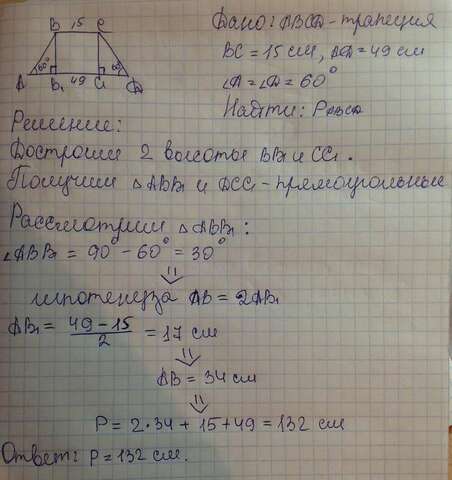 B 15 C
60° 60°
A B₁ 49 C₁ D
Дано: ABCD - трапеция
BC = 15 см, AD = 49 см
∠A = ∠D = 60°
Найти: P_ABCD
Решение:
Достроим 2 высоты BB₁ и CC₁.
Получим △ABB₁ и DCC₁ - прямоугольные
Рассмотрим △ABB₁:
∠ABB₁ = 90° - 60° = 30°
⇓
гипотенуза AB = 2AB₁
AB₁ = (49 - 15)/2 = 17 см
⇓
AB = 34 см
⇓
P = 2·34 + 15 + 49 = 132 см
Ответ: P = 132 см.